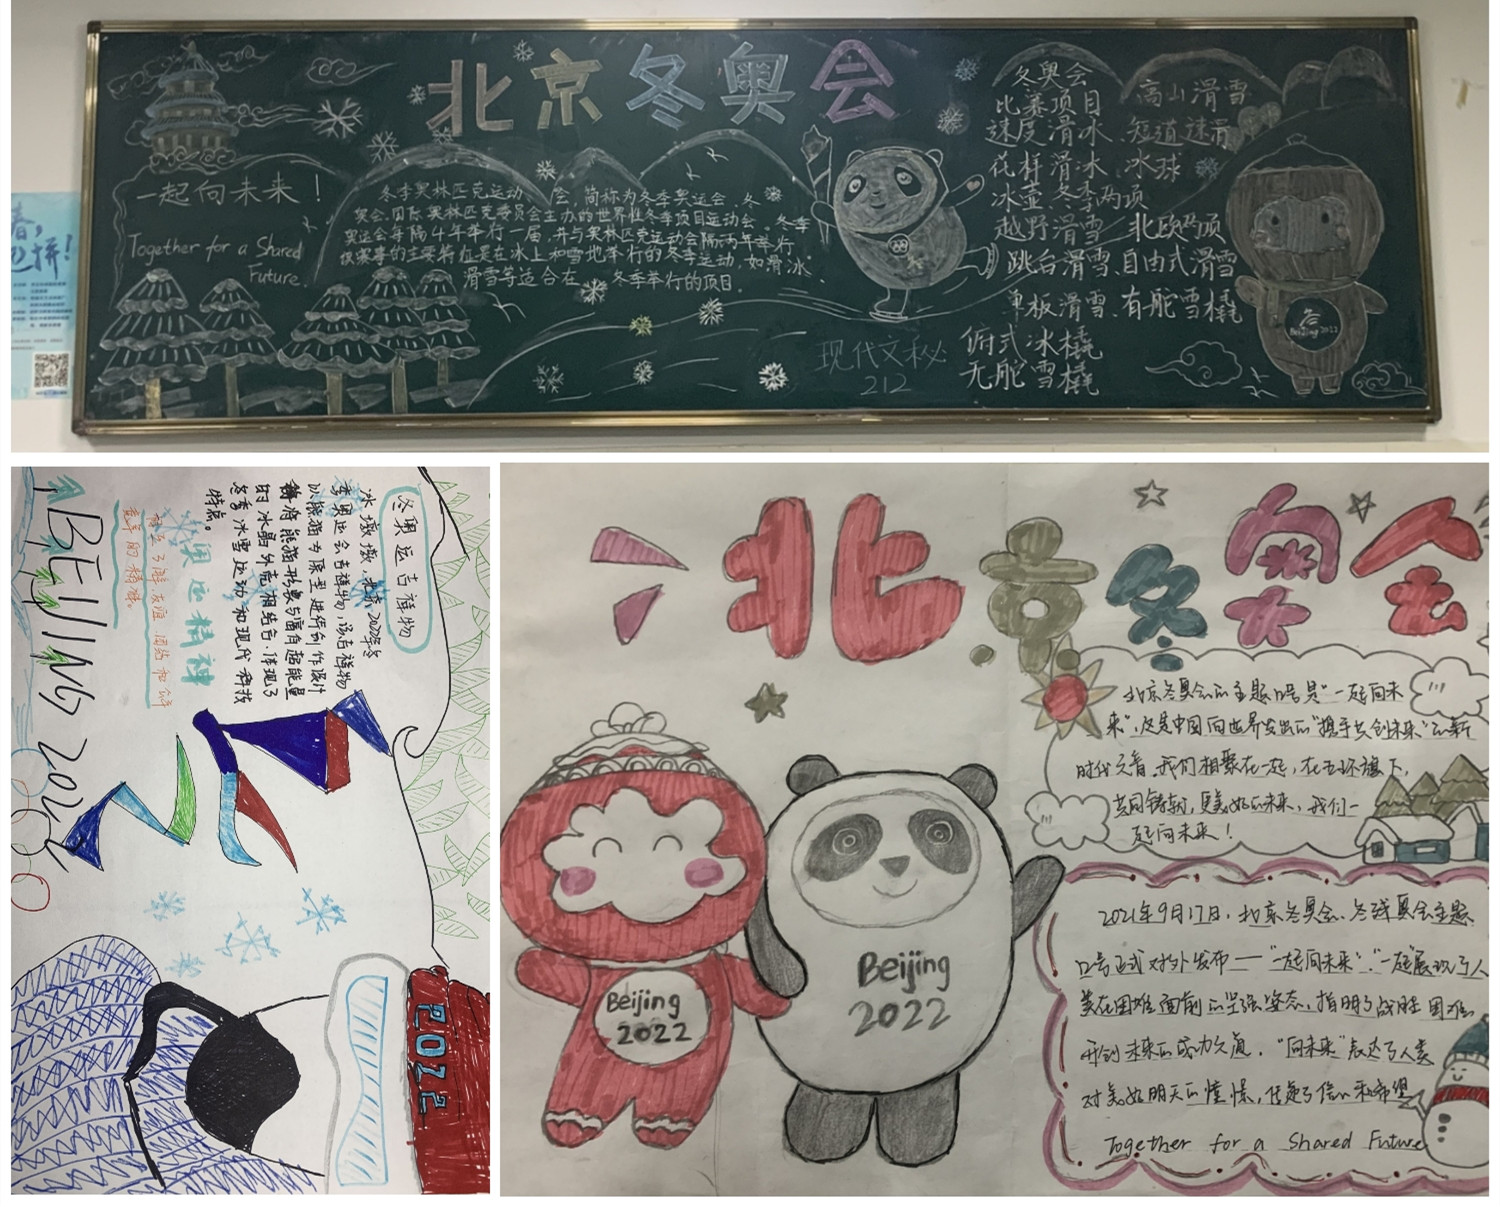 北京冬奥会
一起向未来！
Together for a Shared
Future.
冬季奥林匹克运动会,简称为冬季奥运会、冬
奥会.国际奥林匹克委员会主办的世界性冬季项目运动会。冬季
奥运会每隔4年举行一届,并与奥林匹克运动会隔两年举行.
该赛事的主要特征是在冰上和雪地举行的冬季运动,如滑冰、
滑雪等适合在冬季举行的项目.
现代文秘
212
冬奥会
比赛项目 高山滑雪
速度滑冰、短道速滑
花样滑冰、冰球
冰壶、冬季两项
越野滑雪 北欧两项
跳台滑雪、自由式滑雪
单板滑雪、有舵雪橇
俯式冰橇
无舵雪橇
Beijing 2022
春,
拼!
冬奥运吉祥物
冰墩墩,北京2022年冬
季奥运会吉祥物,该吉祥物
以熊猫为原型进行创作设计
将熊猫形象与富有超能量
的冰晶外壳相结合.体现了
冬季冰雪运动和现代科技
特点。
奥运精神
相互了解、友谊、团结和公平
竞争的精神。
BEIJING 2022
2022
北京冬奥会
北京冬奥会的主题口号是“一起向未
来”,这是中国向世界发出的“携手共创未来”的新
时代之音.我们相聚在一起,在五环旗下,
共同铸就,更美好的未来,我们一
起向未来！
2021年9月17日,北京冬奥会、冬残奥会主题
口号正式对外发布——“一起向未来”.“一起”展现了人
类在困难面前的坚强姿态,指明了战胜困难
开创未来的成功之道.“向未来”表达了人类
对美好明天的憧憬,传递了信心和希望
Together for a Shared Future
Beijing
2022
Beijing
2022